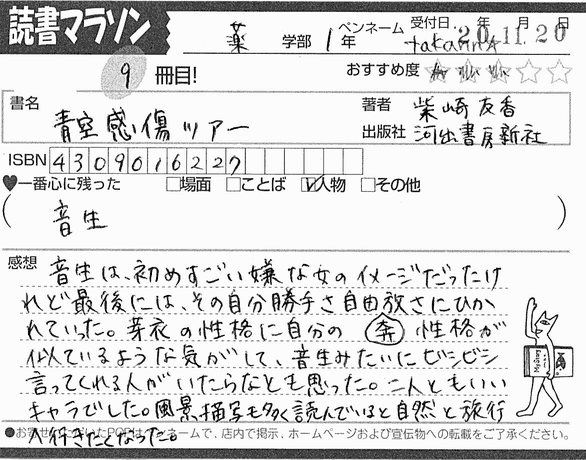 読書マラソン
薬 学部 1年
ペンネーム takarin☆
受付日 年 月 日
20.11.20
9 冊目!
おすすめ度 ☆☆☆☆☆
書名 青空感傷ツアー
著者 柴崎友香
出版社 河出書房新社
ISBN 4309016227
♥一番心に残った □場面 □ことば ☑人物 □その他
( 音生 )
感想 音生は、初めすごい嫌な女のイメージだったけ
れど最後には、その自分勝手さ自由放さにひか
れていった。芽衣の性格に自分の 奔 性格が
似ているような気がして、音生みたいにビシビシ
言ってくれる人がいたらなとも思った。二人ともいい
キャラでした。風景描写も多く読んでいると自然と旅行
へ行きたくなった。
●お寄せいただいたPOPはペンネームで、店内で掲示、ホームページおよび宣伝物への転載をご了承ください。